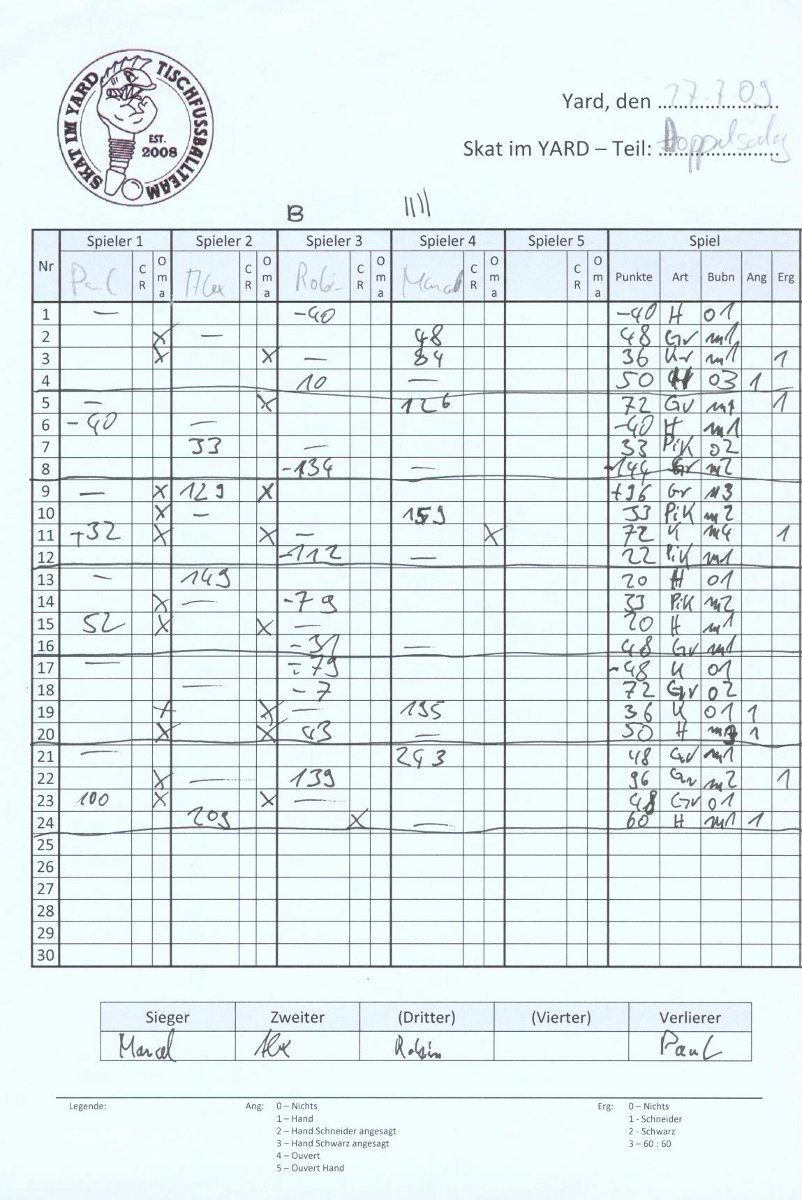 SKAT IM YARD TISCHFUSSBALLTEAM
EST.
2008
Yard, den 27.7.09
Skat im YARD – Teil:
B
Spieler 1 Spieler 2 Spieler 3 Spieler 4 Spieler 5 Spiel
Nr Paul CR Oma Alex CR Oma Robin CR Oma Marcel CR Oma CR Oma Punkte Art Bubn Ang Erg
1 — -40 -40 H 01
2 X — 48 48 Gr m1
3 X X — 84 36 Kr m1 1
4 10 — 50 H 03 1
5 — X 126 72 Gr m1 1
6 -40 — -40 H m1
7 33 — 33 Pik 02
8 -134 — -144 Gr m2
9 — X 129 X +96 Gr m3
10 X — 159 33 Pik m2
11 +32 X X — X 72 K m4 1
12 -112 — 22 Pik m1
13 — 149 20 H 01
14 X — -79 33 Pik m2
15 52 X X — 20 H m1
16 -31 — 48 Gr m1
17 — -79 -48 K 01
18 — -7 72 Gr 02
19 X X — 195 36 K 01 1
20 X X 43 — 50 H 1
21 — 243 48 Gr m1
22 X — 139 96 Gr m2 1
23 100 X X — 48 Gr 01
24 209 X — 60 H m1 1
25
26
27
28
29
30
Sieger Zweiter (Dritter) (Vierter) Verlierer
Marcel Alex Robin Paul
Legende: Ang: 0 – Nichts Erg: 0 – Nichts
1 – Hand 1 - Schneider
2 – Hand Schneider angesagt 2 - Schwarz
3 – Hand Schwarz angesagt 3 – 60 : 60
4 – Ouvert
5 – Ouvert Hand